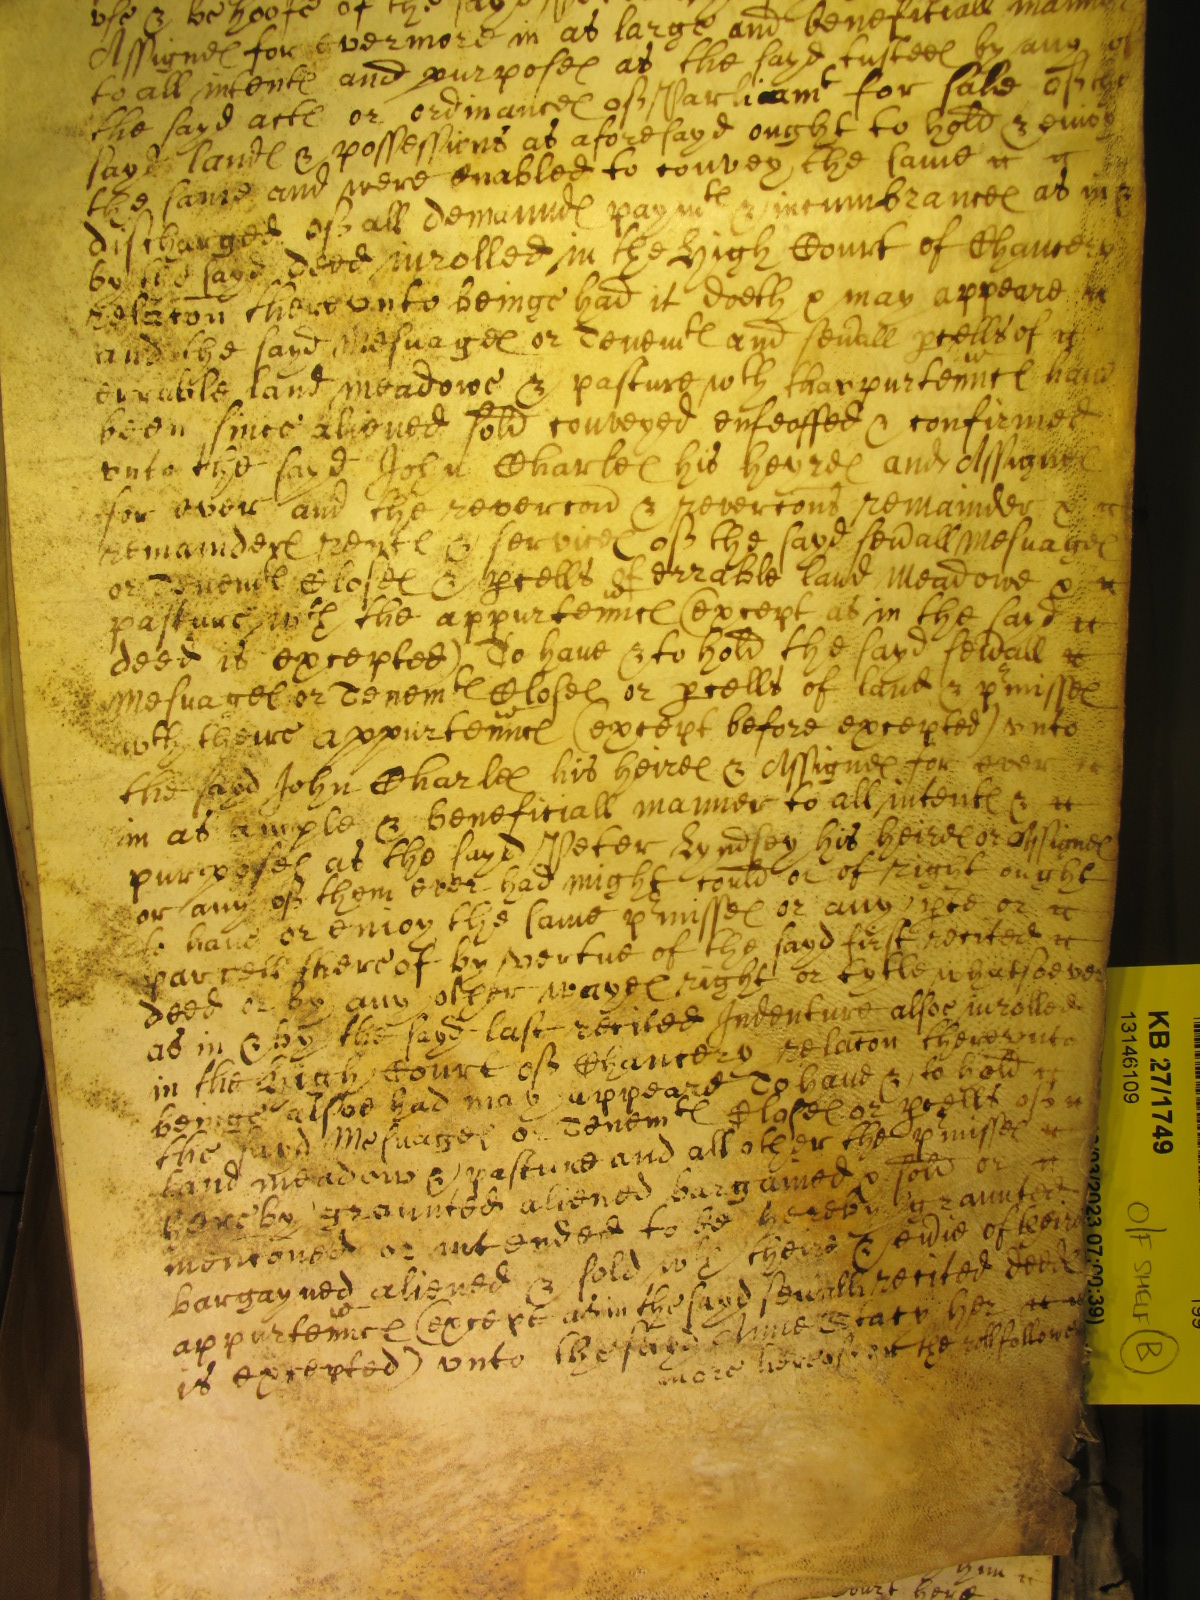 vse & behoofe of the sayd
Assignes for evermore in as large and beneficiall manner
to all intents and purposes as the sayd trustees by any of
the sayd acts or ordinances of Parliamt for sale of the
sayd lands & possessions as aforesayd ought to hold & enioy
the same and were enabled to convey the same
discharged of all demaunds paymts & incumbrances as in &
by the sayd deed inrolled in the High Court of Chancery
relacon therevnto beinge had it doeth & may appeare
and the sayd Mesuages or Tenemts and sevall pcells of
errable land meadowe & pasture wth thappurtennces have
been since aliened sold conveyed enfeoffed & confirmed
vnto the sayd John Charles his heyres and Assignes
for ever and the revercon & revercons remainder &
remainders rents & services of the sayd sevall Mesuages
or Tenemts Closes & pcells of errable land Meadowe &
pasture wth the appurtennces (except as in the sayd
deed is excepted) To have & to hold the sayd sevall
Mesuages or Tenemts Closes or pcells of land & pmisses
wth theire appurtennces (except before excepted) vnto
the sayd John Charles his heires & Assignes for ever
in as ample & beneficiall manner to all intents &
purposes as the sayd Peter Lyndsey his heires or Assignes
or any of them ever had might could or of right ought
to have or enioy the same pmisses or any pte or
parcell thereof by vertue of the sayd first recited
deed or by any other wayes right or tytle whatsoever
as in & by the sayd last recited Indenture alsoe inrolled
in the High Court of Chancery relacon therevnto
beinge alsoe had may appeare To have & to hold
the sayd Mesuages or Tenemts Closes or pcells of
land meadow & pasture and all other the pmisses
hereby graunted aliened bargained & sold or
mencioned or intended to be hereby graunted
bargayned aliened & sold wth theire & evie of theire
appurtennces (except as in the sayd sevall recited deeds
is excepted) vnto the sayd Anne Stacy her
more hereof in the roll followe
Court here
KB 27/1749
13146109
07:00:39)
O/F SHELF B